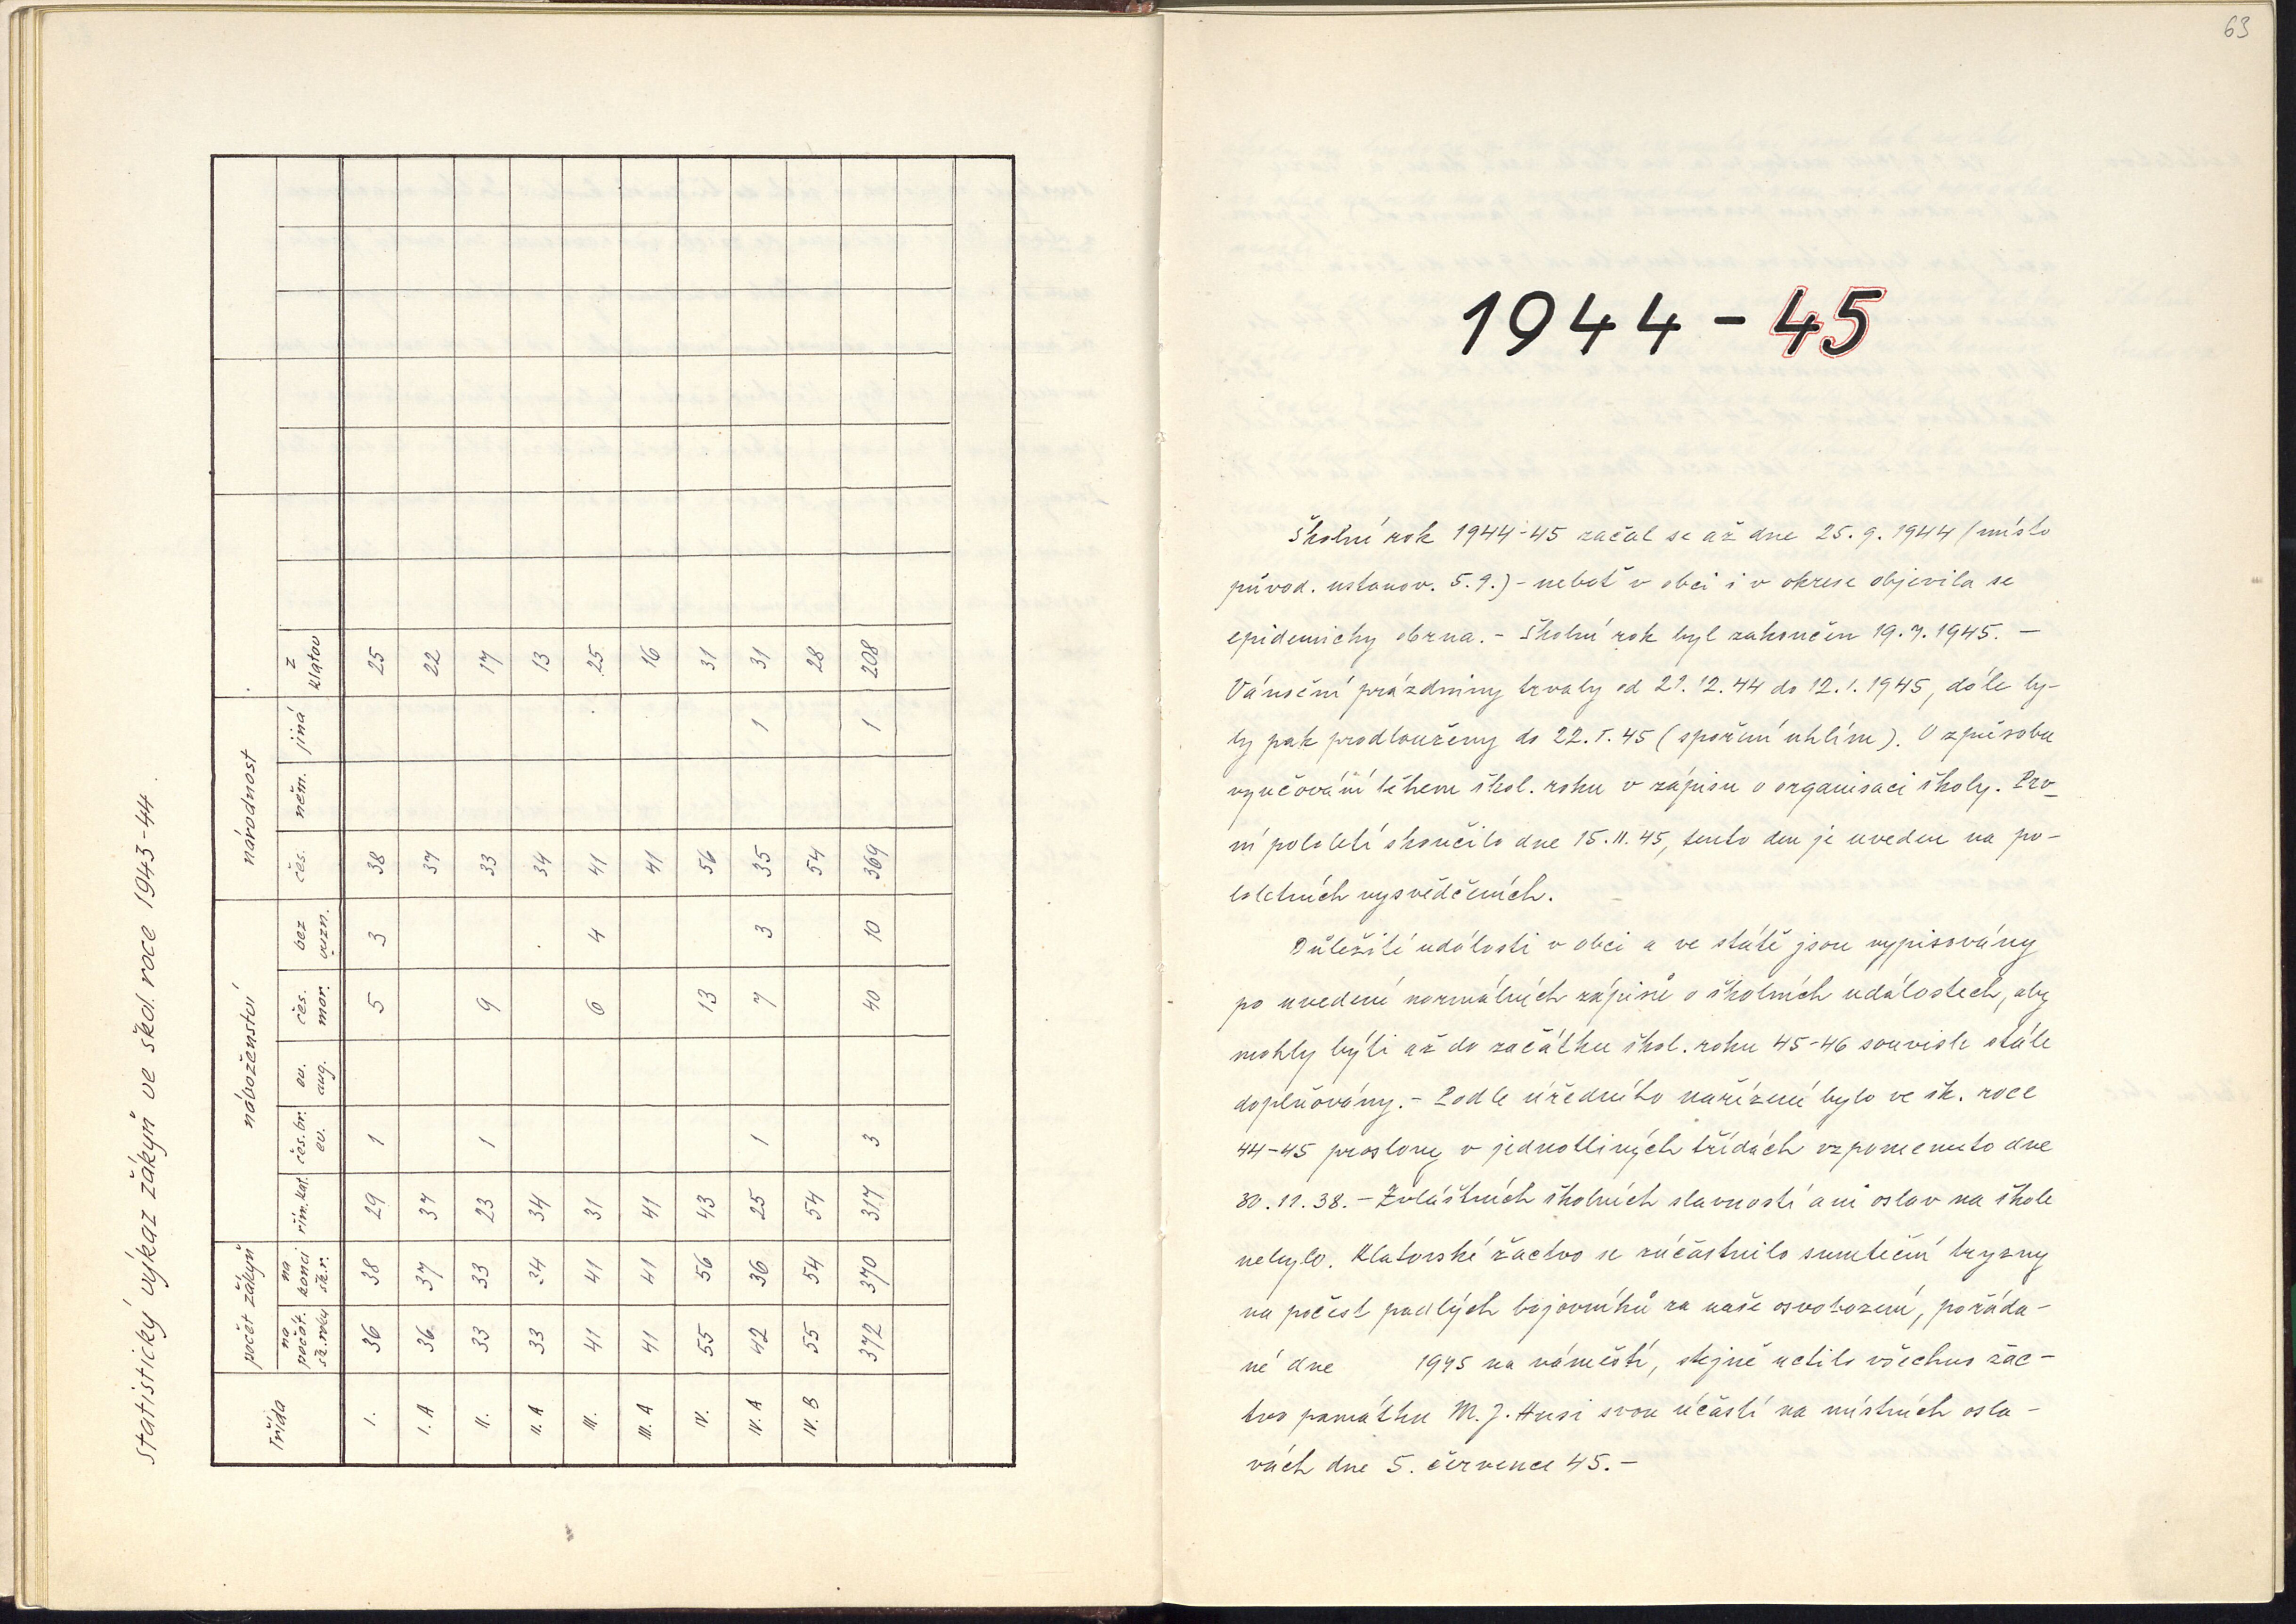 Statistický výkaz žákyň ve škol. roce 1943-44.
Třída | počet žákyň | náboženství | národnost
na počát. šk. roku | na konci šk. r. | řím. kat. | čes. br. ev. | ev. aug. | čes. mor. | bez vyzn. | čes. | něm. | jiná | z Klatov
I. 36 38 29 1 5 3 38 25
I. A 36 37 37 37 22
II. 33 33 23 1 9 33 17
II. A 33 34 34 34 13
III. 41 41 31 6 4 41 25
III. A 41 41 41 41 16
IV. 55 56 43 13 56 31
IV. A 42 36 25 1 7 3 35 1 31
IV. B 55 54 54 54 28
372 370 317 3 40 10 369 1 208
63
1944-45
Školní rok 1944-45 začal se až dne 25.9.1944 (místo
původ. ustanov. 5.9.) - neboť v obci i v okrese objevila se
epidemicky obrna. - Školní rok byl zakončen 19.7.1945. -
Vánoční prázdniny trvaly od 21.12.44 do 12.1.1945, dále by-
ly pak prodlouženy do 22.I.45 (spoření uhlím). O způsobu
vyučování během škol. roku v zápisu o organisaci školy. Prv-
ní pololetí skončilo dne 15.II.45, tento den je uveden na po-
loletních vysvědčeních.
Důležité události v obci a ve státě jsou vypisovány
po uvedení normálních zápisů o školních událostech, aby
mohly býti až do začátku škol. roku 45-46 souvisle stále
doplňovány. - Podle úředního nařízení bylo ve šk. roce
44-45 proslovy v jednotlivých třídách vzpomenuto dne
30.11.38. - Zvláštních školních slavností ani oslav na škole
nebylo. Klatovské žactvo se zúčastnilo smuteční tryzny
na počest padlých bojovníků za naše osvobození, pořáda-
né dne 1945 na náměstí, stejně uctilo všechno žac-
tvo památku M. J. Husi svou účastí na místních osla-
vách dne 5. července 45. -